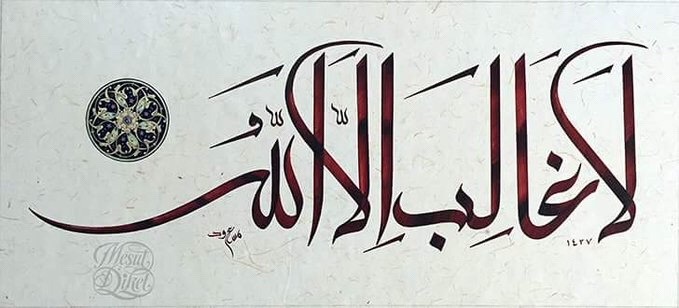 لَا غَالِبَ إِلَّا اللّٰهُ
١٤٣٧
Mesut
Dikel